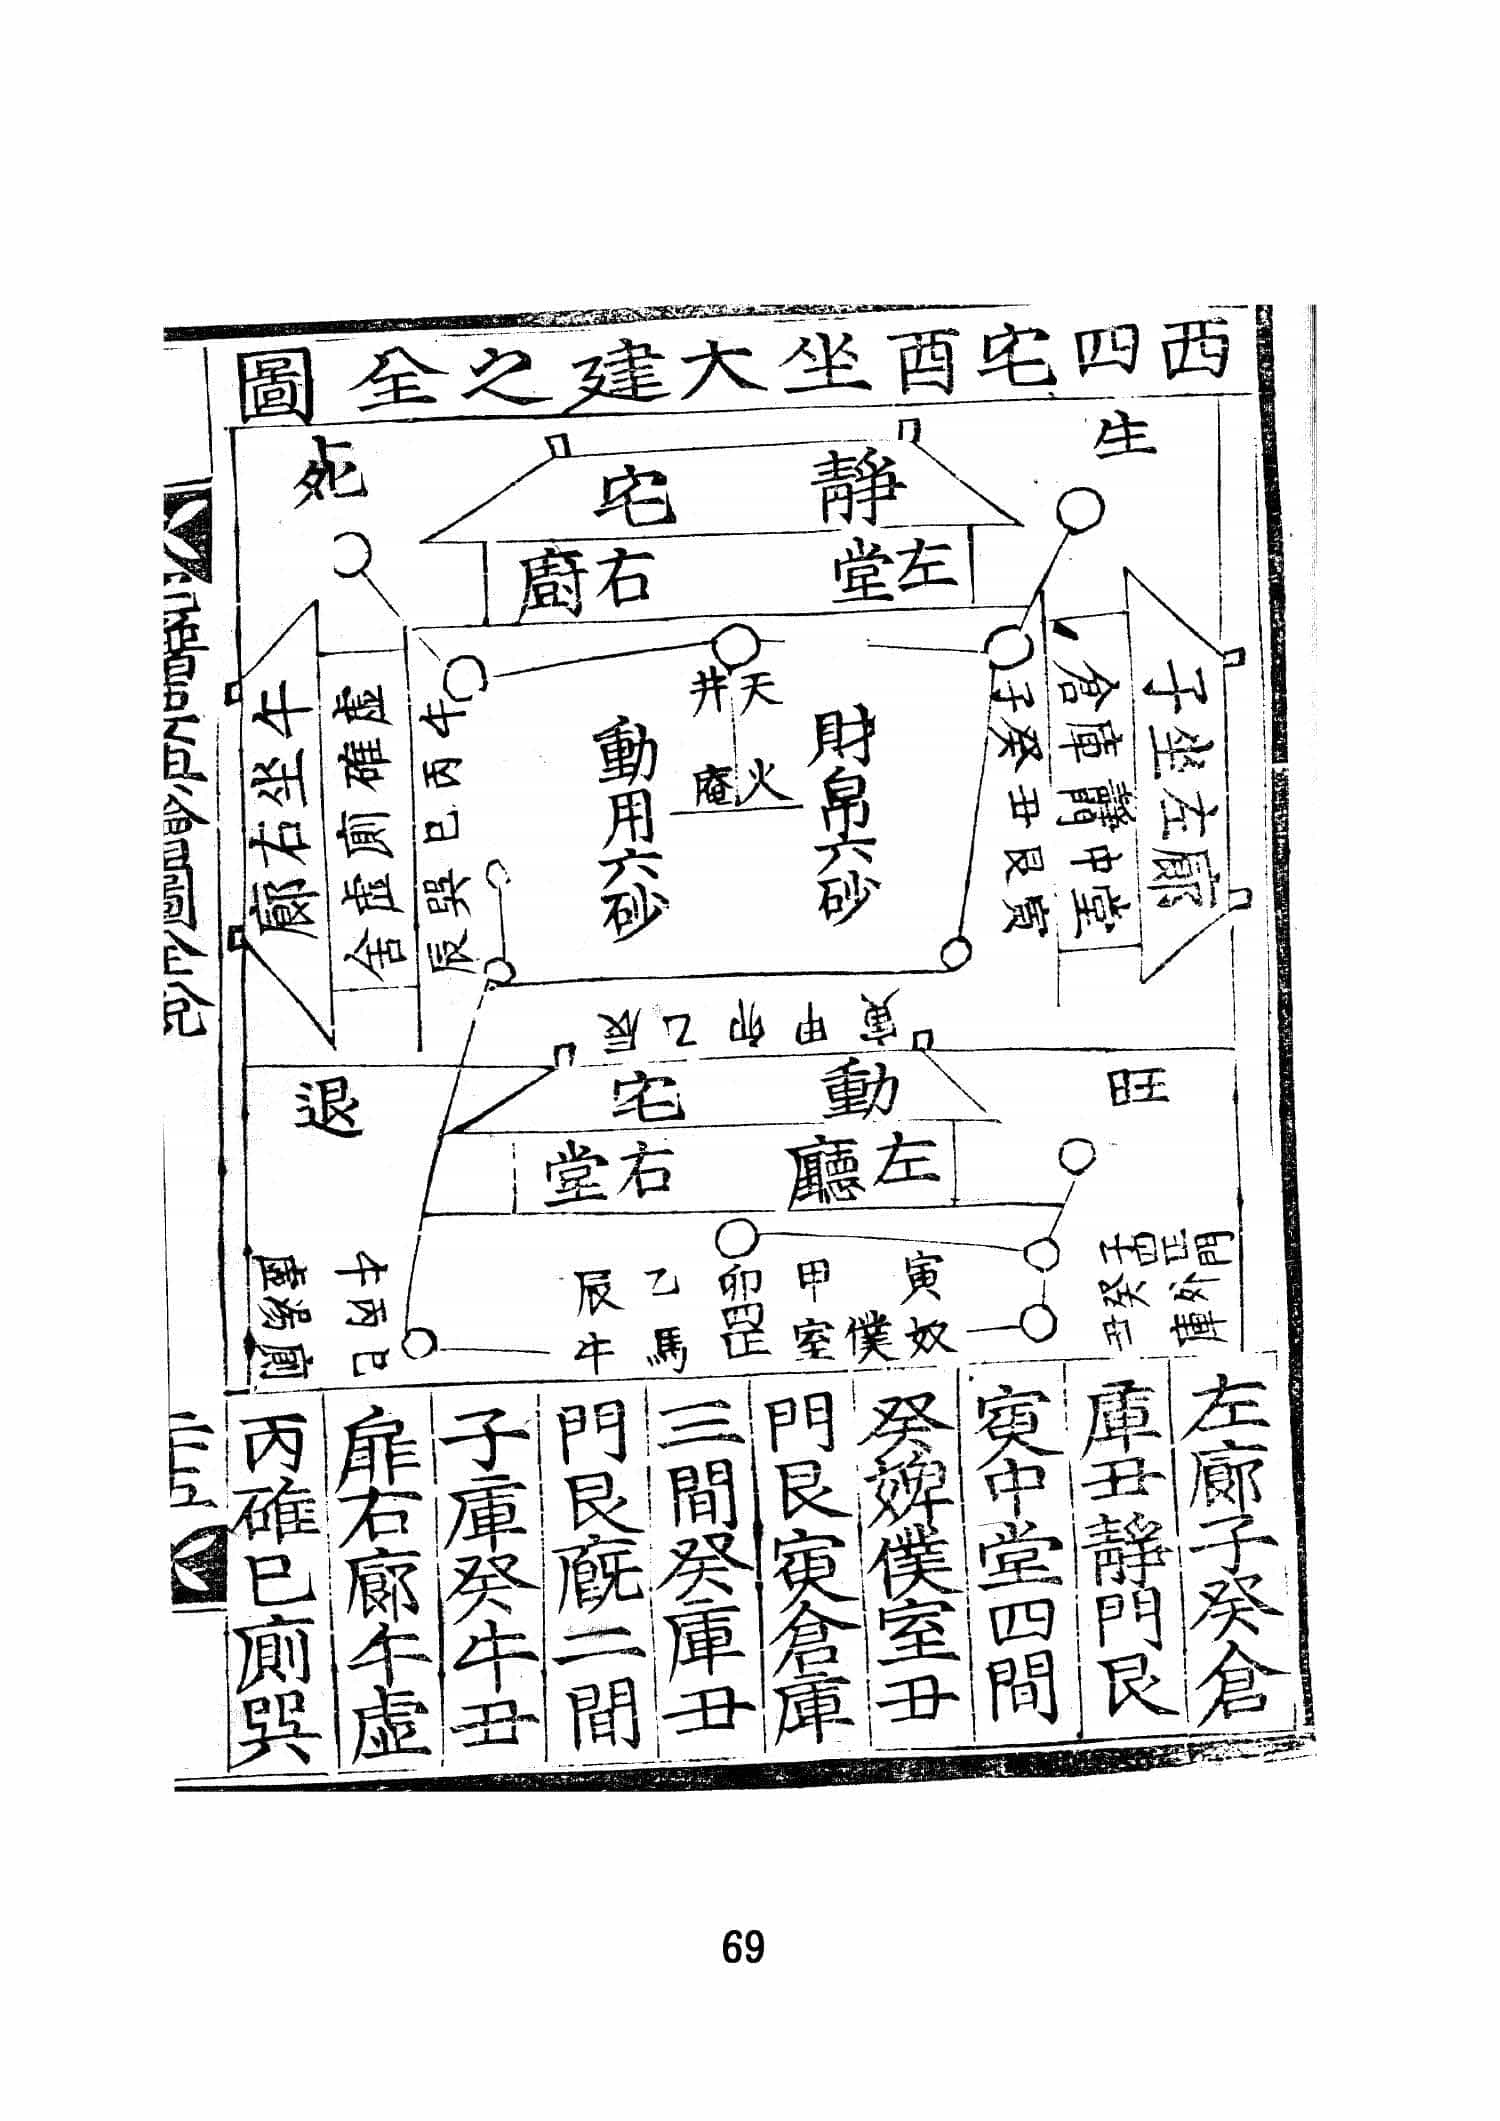 西四宅酉坐大建之全圖
生
死
靜宅
左堂
右廚
天井
火庵
財帛六砂
動用六砂
子坐左廊
倉庫
中堂
子癸丑艮寅
午坐右廊
虛碓廁虛舍
午丙巳巽辰
寅甲卯乙辰
旺
退
動宅
左廳
右堂
寅甲卯乙辰
奴僕室
馬牛
子癸
門外庫
午丙巳
廁
左廊子癸倉
庫丑靜門艮
寅中堂四間
癸婢僕室丑
門艮寅倉庫
三間癸庫丑
門艮廐二間
子庫癸牛丑
扉右廊午虛
丙碓巳廁巽
69